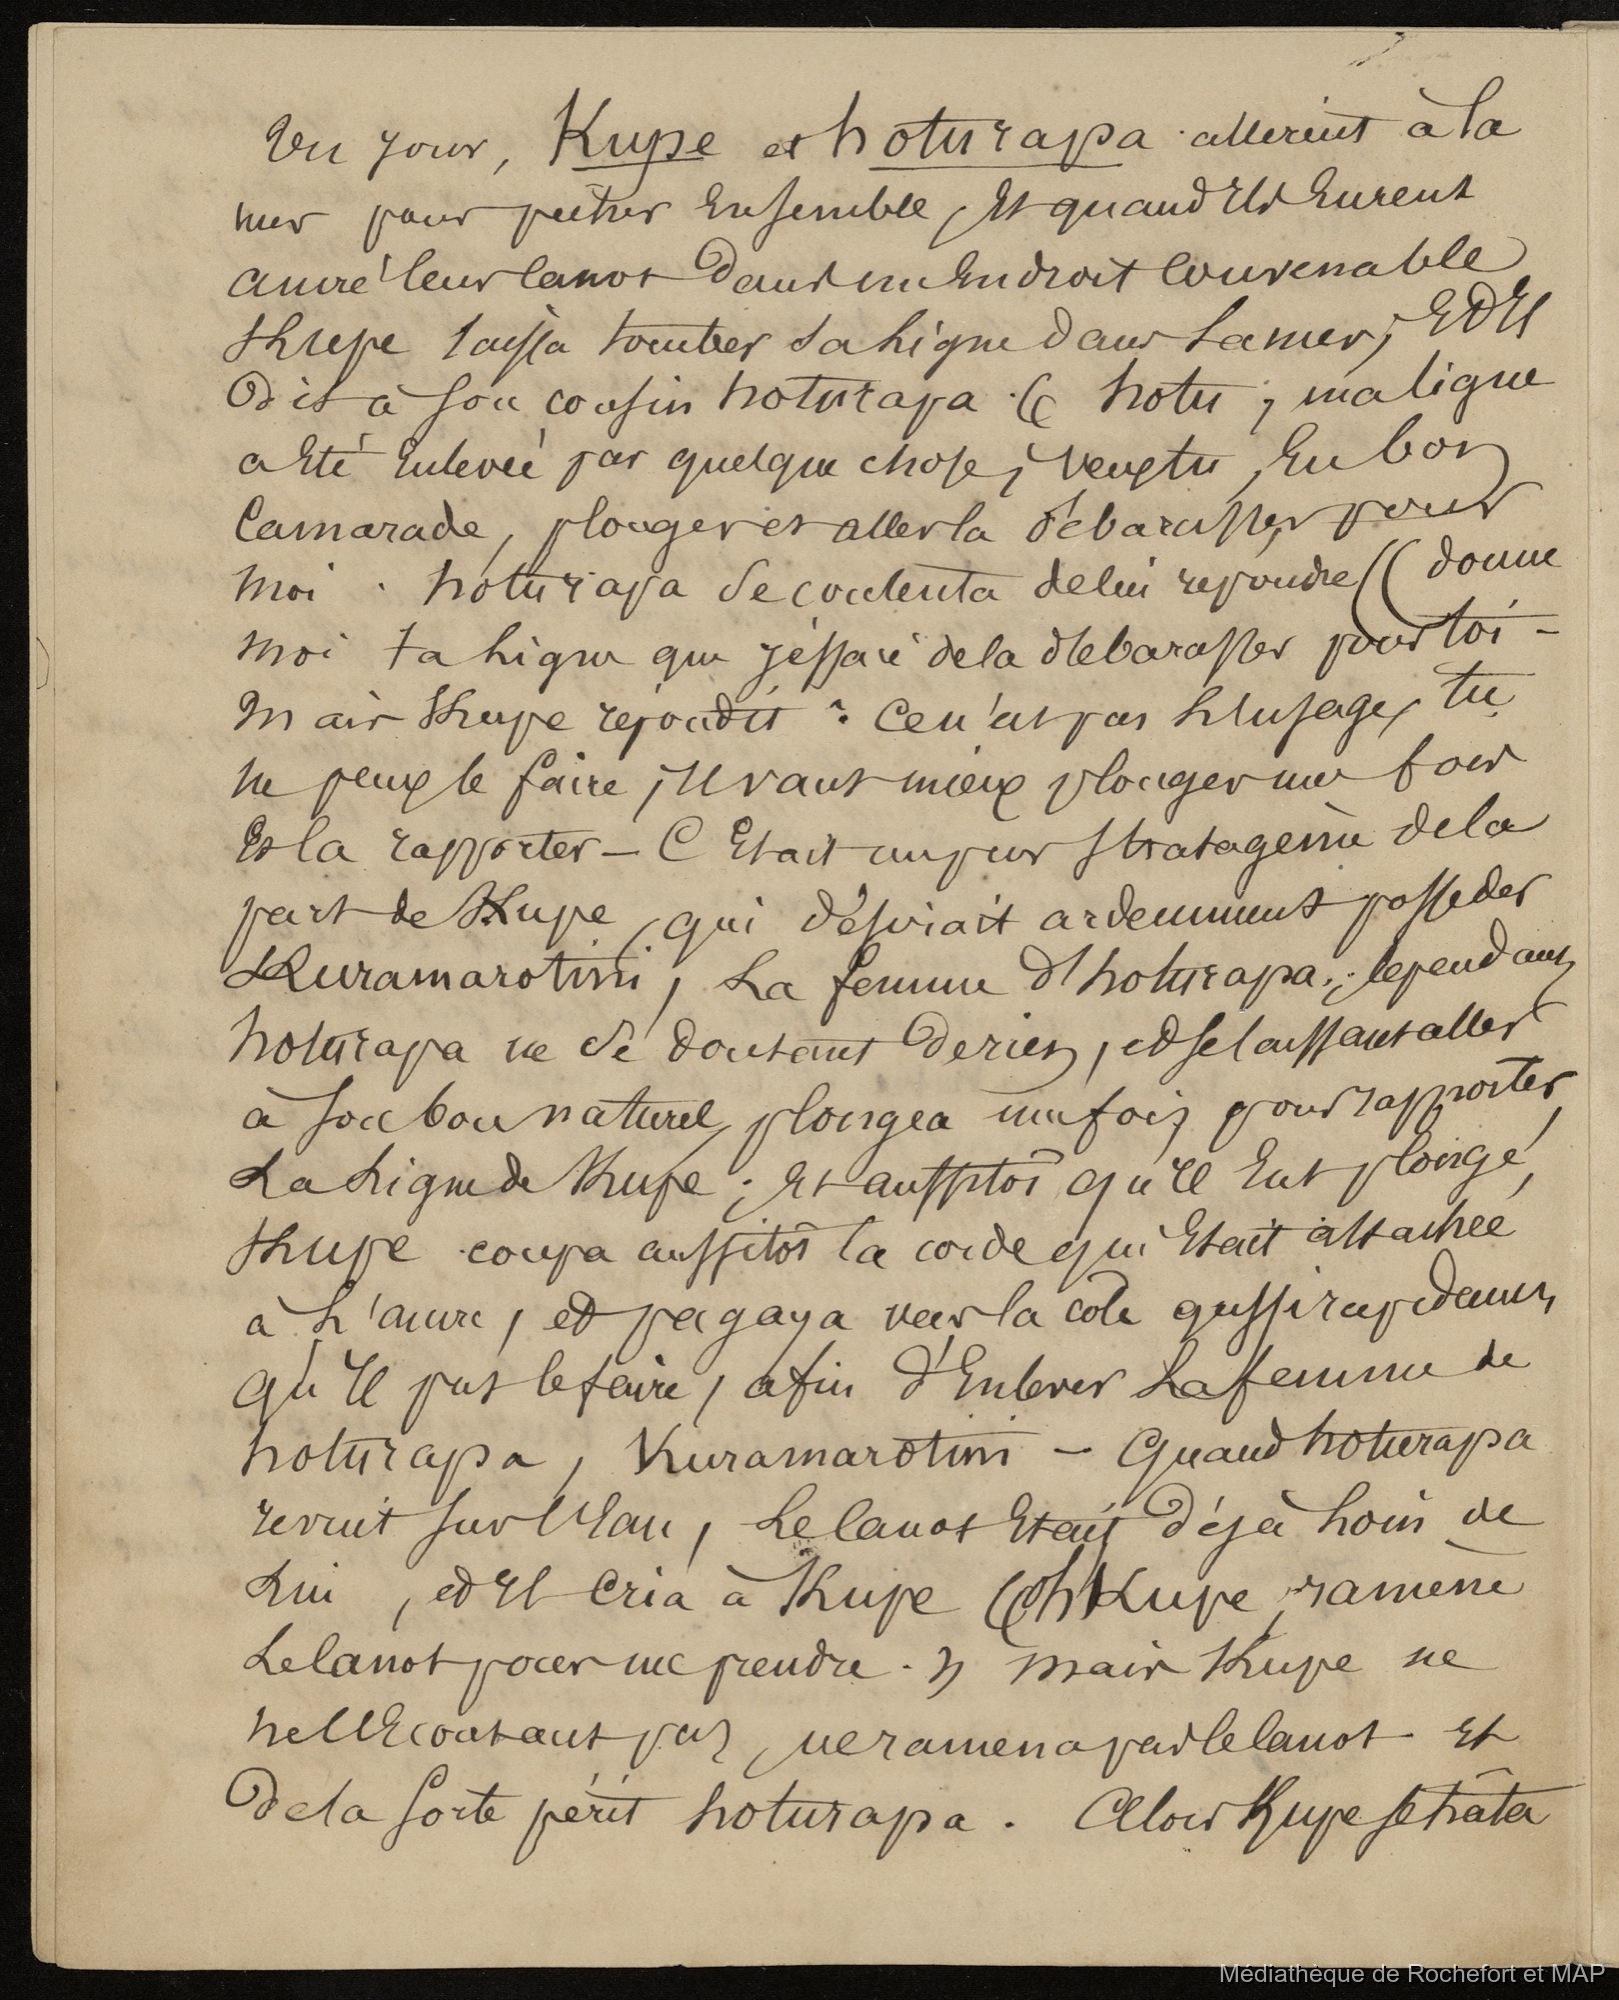 Un jour, Kupe et hoturapa allerent à la
mer pour pêcher Ensemble, Et quand Ils Eurent
ancré leur Canot dans un Endroit Convenable
Kupe laissa tomber sa Ligne dans La mer, Et Il
Dit à son cousin hoturapa (( hotu, ma ligne
a Eté Enlevée par quelque chose, veux tu, En bon
Camarade, plonger et aller la débarasser pour
moi . hoturapa se contenta de lui repondre (( donne
moi ta Ligne que j'éssaie de la débarasser pour toi -
Mais Kupe répondit : Ce n'est pas L'usage, tu
ne peux le faire, Il vaut mieux plonger une fois
Et la rapporter - C'Etait un pur stratagème de la
part de Kupe, qui désirait ardemment posseder
Kuramarotini, La femme d'hoturapa ; Cependant
hoturapa ne se doutant de rien, et se laissant aller
à son bon naturel, plongea une fois pour rapporter
La Ligne de Kupe ; Et aussitôt qu'Il Eut plongé,
Kupe coupa aussitôt la corde qui Etait attachée
à L'ancre, et pagaya vers la côte aussi rapidement
qu'Il put le faire, afin d'Enlever La femme de
hoturapa, Kuramarotini - Quand hoturapa
revint sur l'Eau, Le Canot Etait déjà Loin de
Lui, et Il Cria à Kupe (( Oh Kupe, ramène
Le Canot pour me prendre . )) Mais Kupe ne
ne l'Ecoutant pas, ne ramena pas le Canot . Et
De la sorte périt hoturapa . Alors Kupe se hâta
Médiathèque de Rochefort et MAP